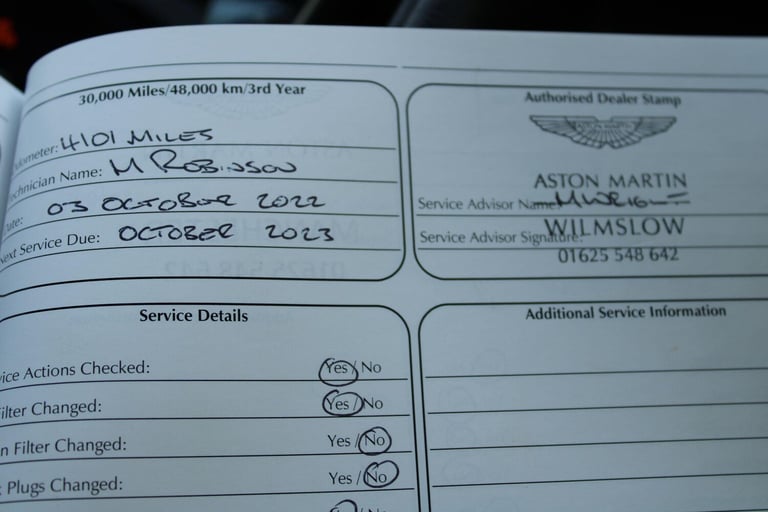 30,000 Miles/48,000 km/3rd Year
ometer: 4101 MILES
chnician Name: M ROBINSON
ate: 03 OCTOBER 2022
Next Service Due: OCTOBER 2023
Authorised Dealer Stamp
ASTON MARTIN
ASTON MARTIN
Service Advisor Name:
WILMSLOW
Service Advisor Signature:
01625 548 642
Service Details
ice Actions Checked: Yes / No
ilter Changed: Yes / No
n Filter Changed: Yes / No
Plugs Changed: Yes / No
No
Additional Service Information